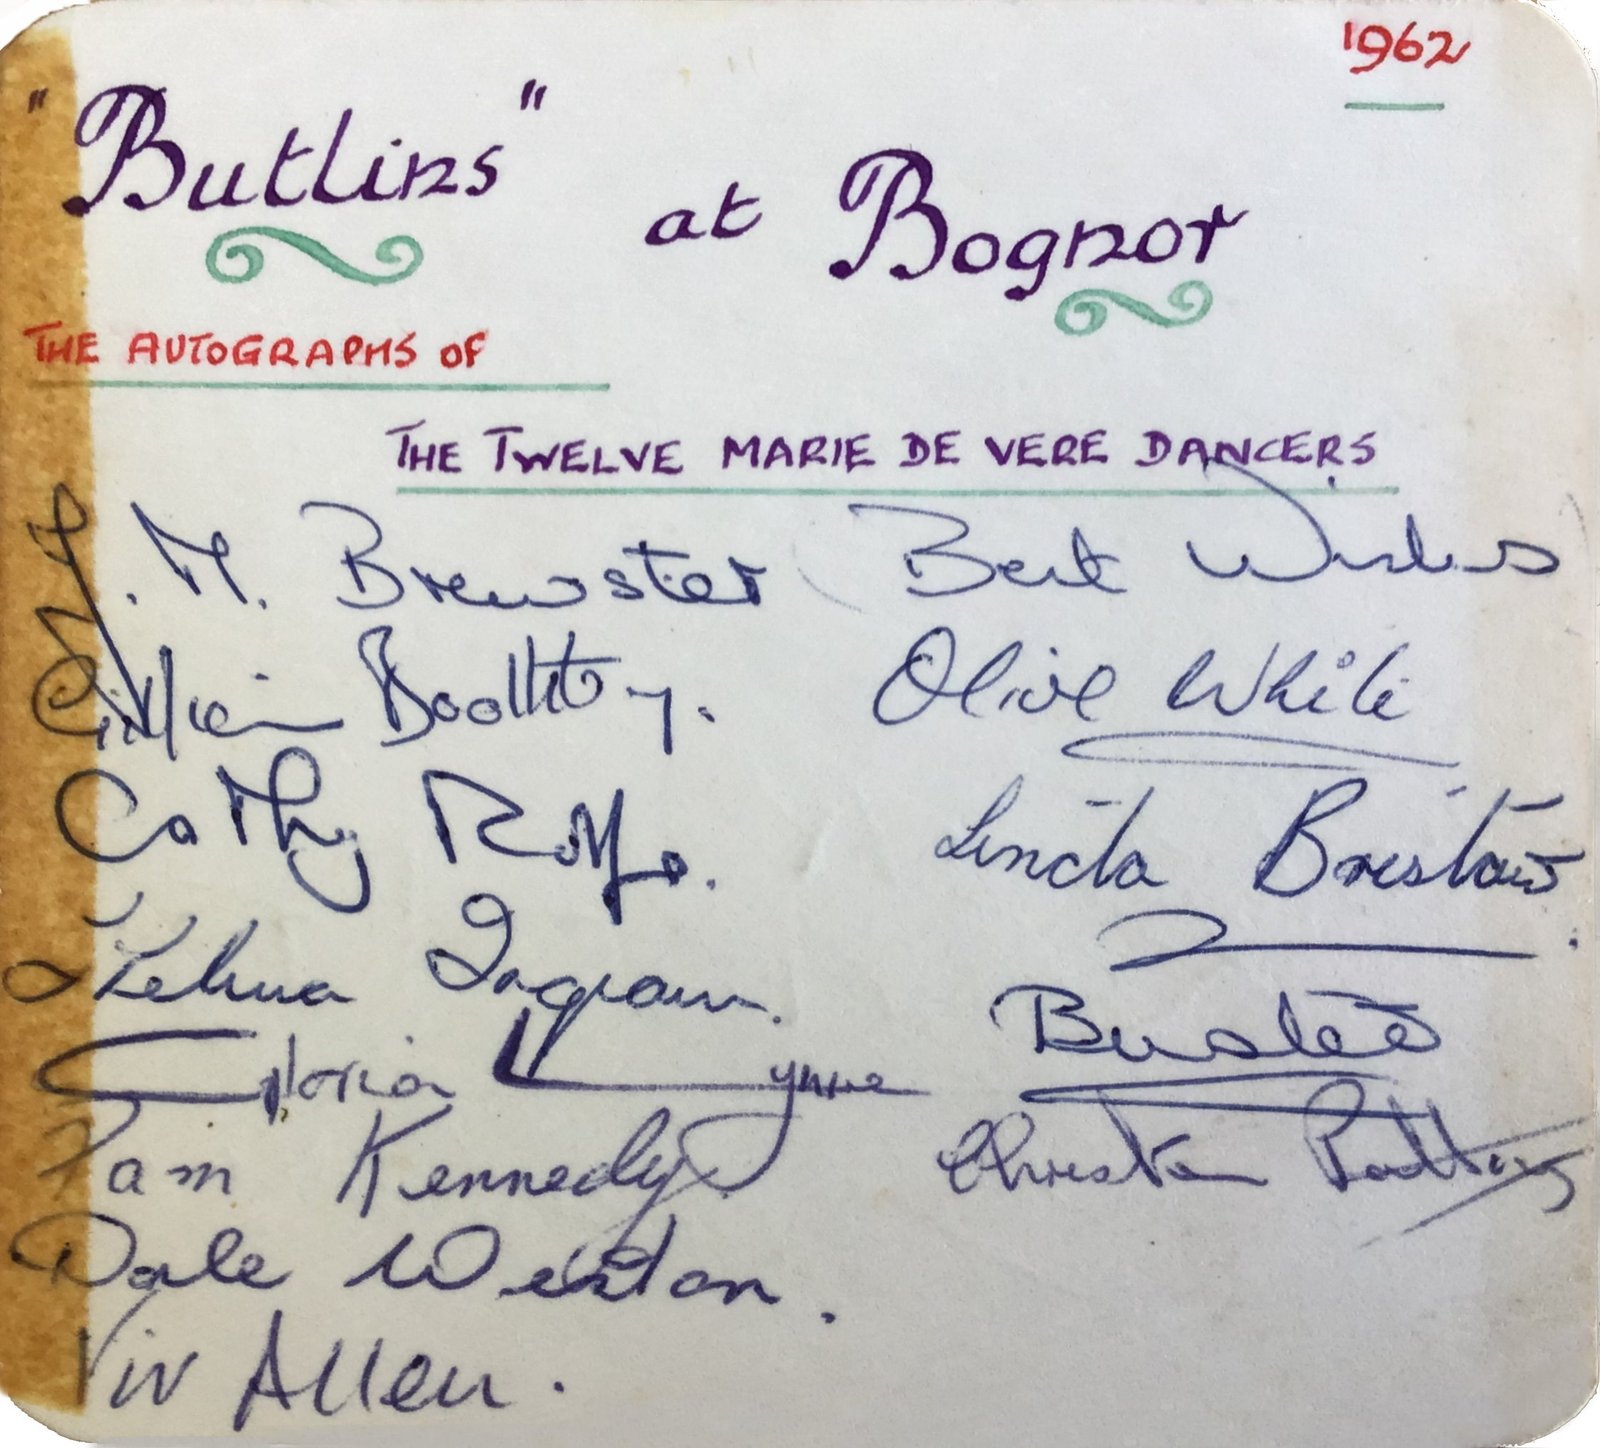 1962
"Butlins" at Bognor
THE AUTOGRAPHS OF
THE TWELVE MARIE DE VERE DANCERS
J. M. Brewster
Best Wishes
Gillian Boothby.
Olive White
Cathy Rolfe.
Linda Bristow.
Thelma Ingram.
Gloria Lynne
Pam Kennedy
Dale Weston.
Viv Allen.